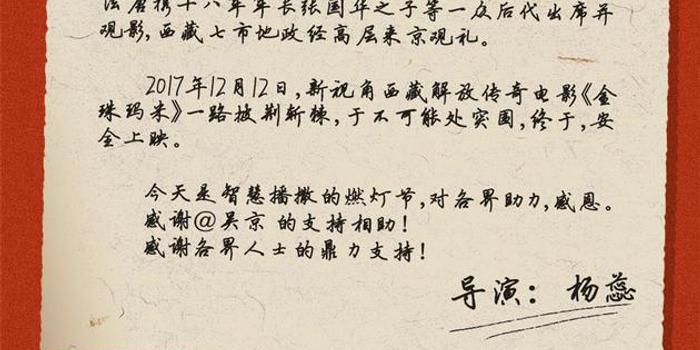 法唐携十八军军长张国华之子等一众后代出席并
观影,西藏七市地政经高层来京观礼。
2017年12月12日,新视角西藏解放传奇电影《金
珠玛米》一路披荆斩棘,于不可能处突围,终于,安
全上映。
今天是智慧播撒的燃灯节,对各界助力,感恩。
感谢@吴京 的支持相助!
感谢各界人士的鼎力支持!
导演: 杨蕊